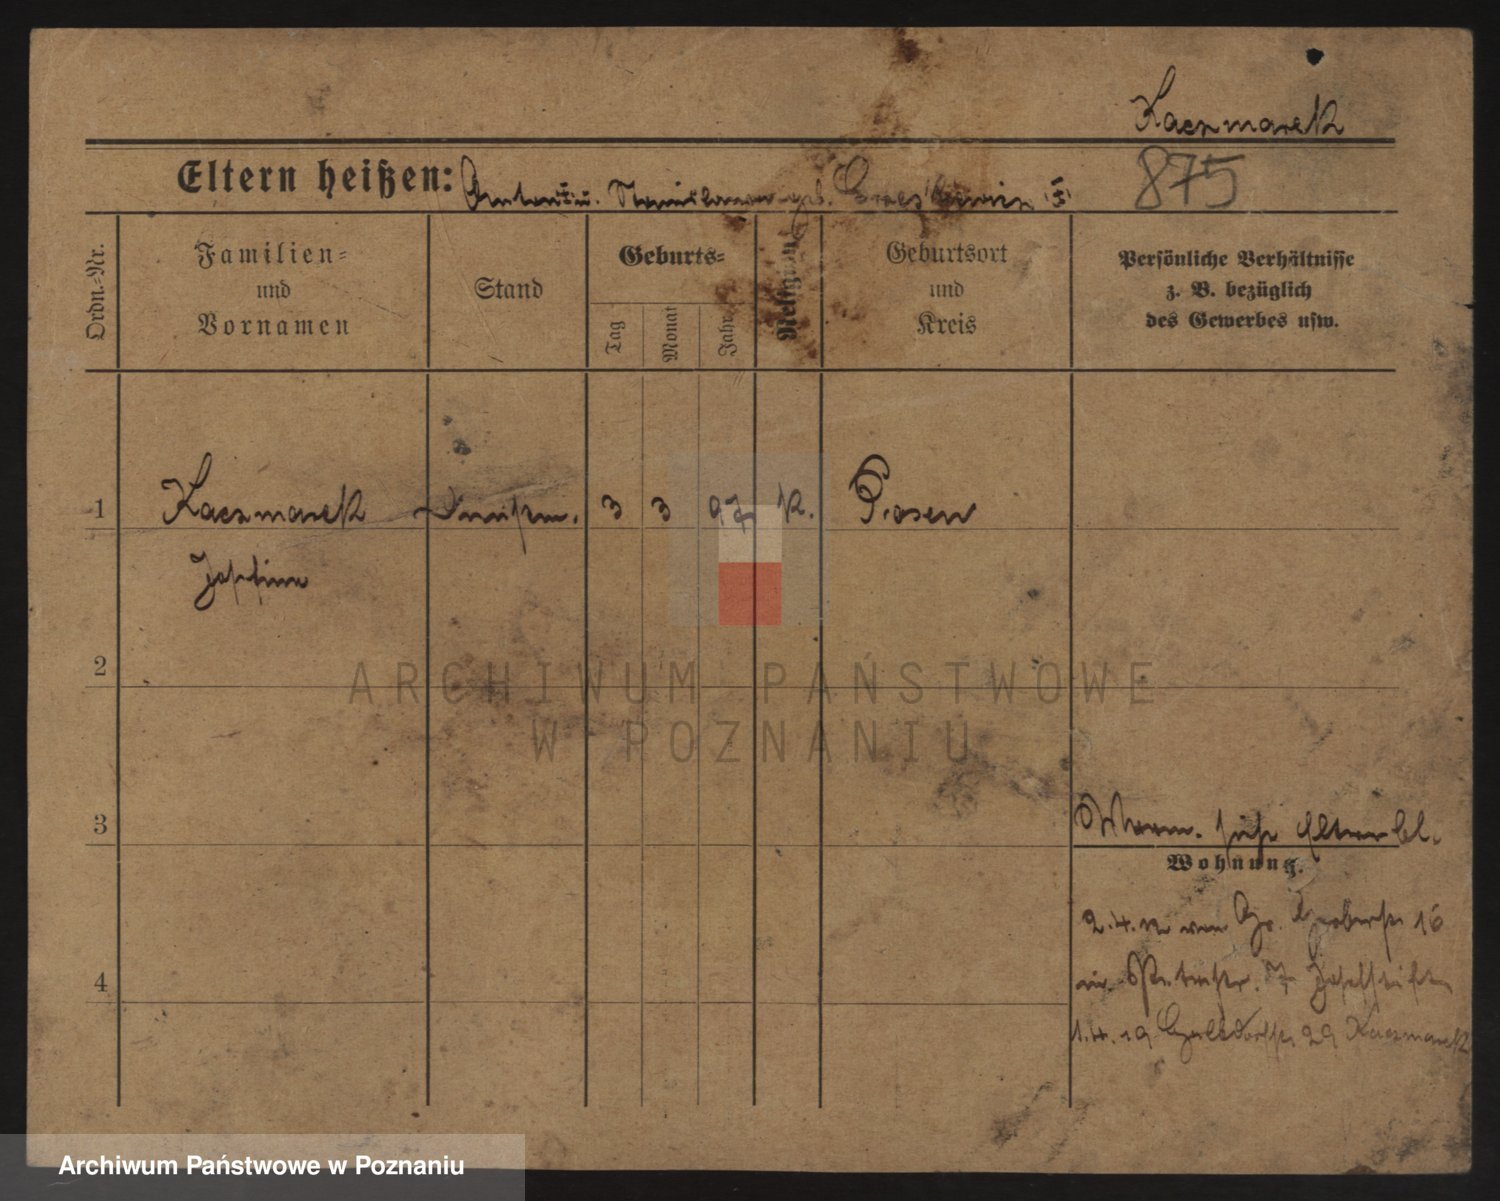 Kaczmarek
Eltern heißen: Anton u. Stanislawa geb.
875
Ordn.-Nr.
Familien-
und
Vornamen
Stand
Geburts-
Tag
Monat
Jahr
Religion
Geburtsort
und
Kreis
Persönliche Verhältnisse
z. B. bezüglich
des Gewerbes usw.
1 Kaczmarek 3 3 97 k. Posen
2
ARCHIWUM PAŃSTWOWE
W POZNANIU
3
siehe Elternbl.
Wohnung.
2.4.12 von Gr. Gerberstr. 16
4
in 7 Josefstift
1.4.19 29 Kaczmarek
Archiwum Państwowe w Poznaniu